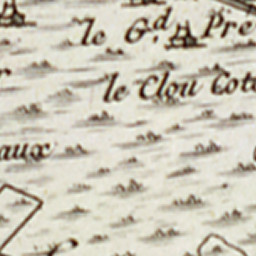 le G.d Pre
le Clou Cot
aux